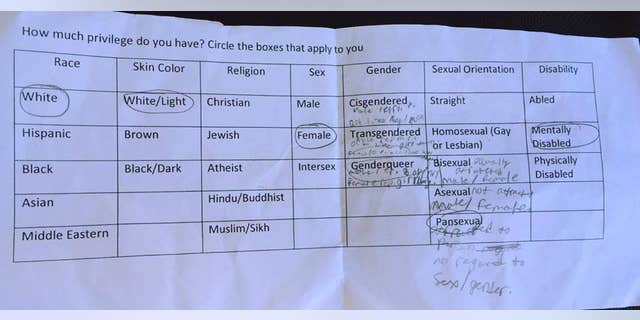 How much privilege do you have? Circle the boxes that apply to you
Race Skin Color Religion Sex Gender Sexual Orientation Disability
White White/Light Christian Male Cisgendered Straight Abled
Hispanic Brown Jewish Female Transgendered Homosexual (Gay or Lesbian) Mentally Disabled
Black Black/Dark Atheist Intersex Genderqueer Bisexual Physically Disabled
male/female
Asian Hindu/Buddhist Asexual not
male/female
Middle Eastern Muslim/Sikh Pansexual
to
no regard to
Sex/gender.